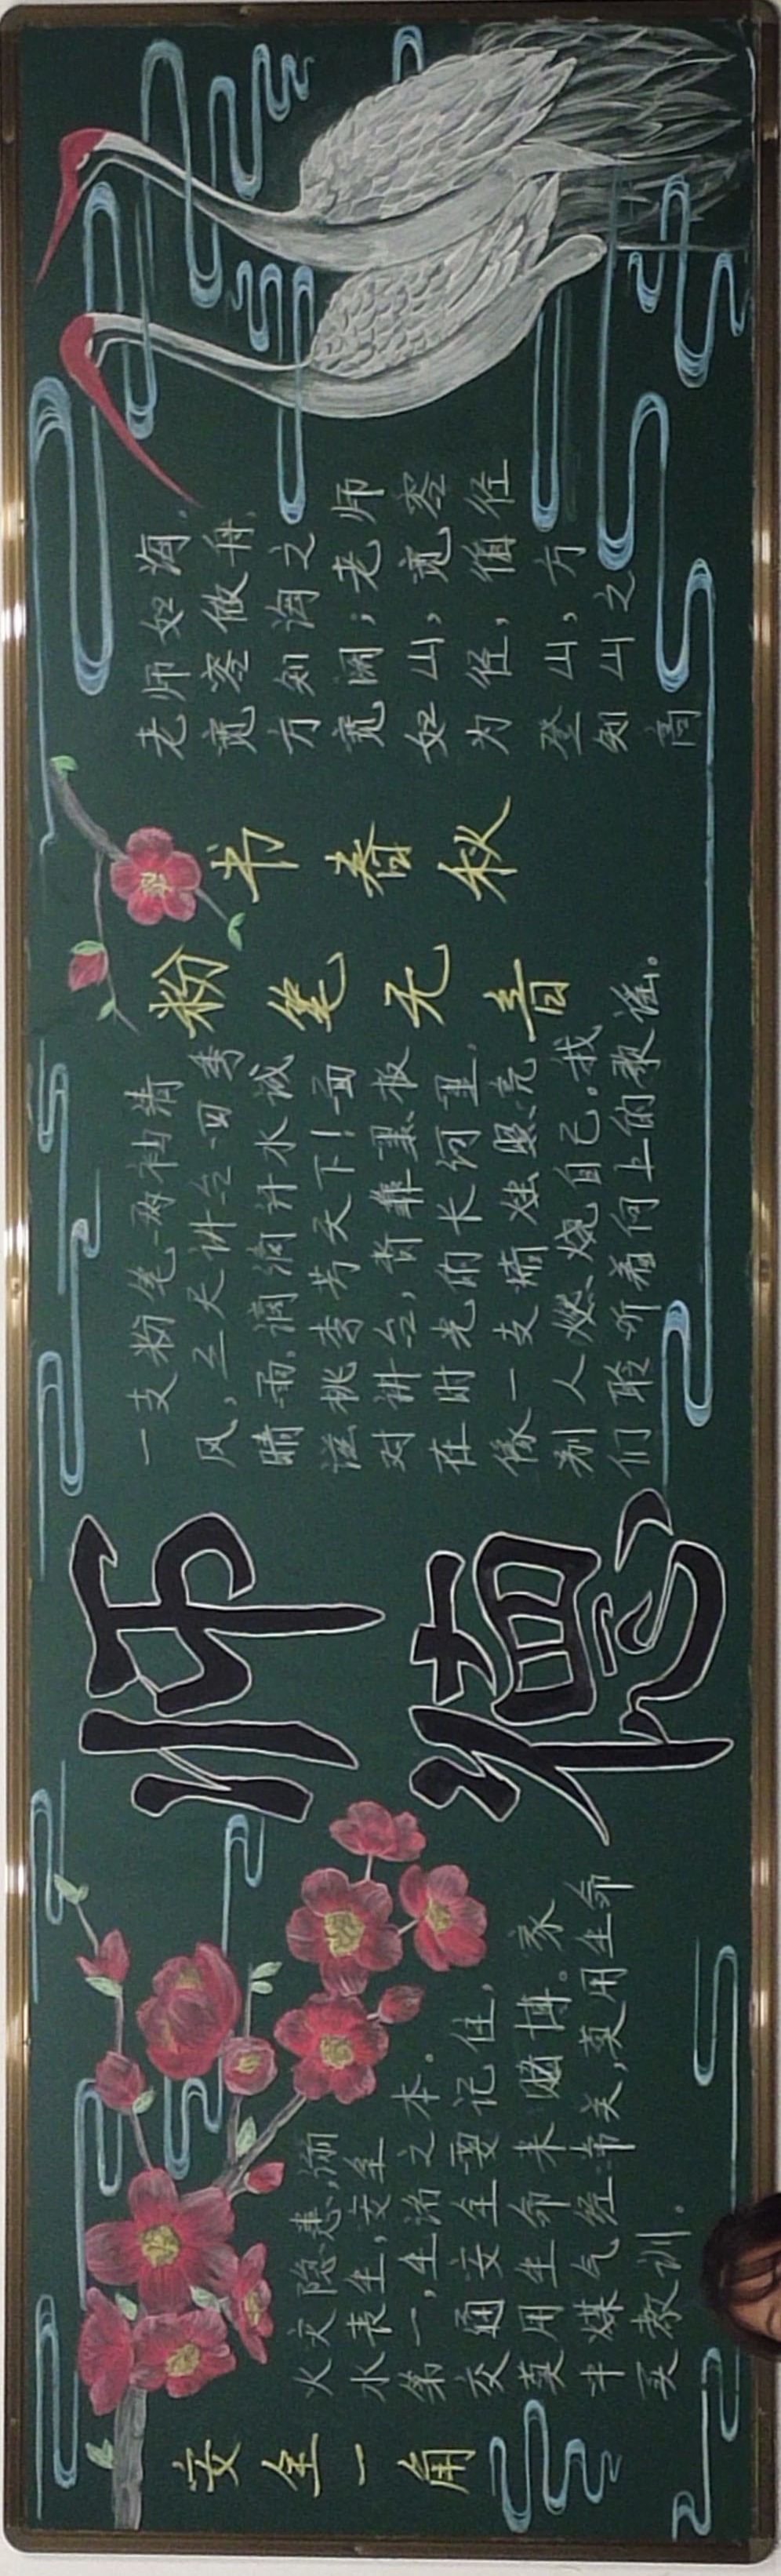 安全一角
火灾隐患,溺
水丧生,安全
第一,生活之本。
交通安全要记住,
莫用生命来赌博。家
中煤气经常关,莫用生命
买教训。
师德
一支粉笔两袖清
风,三尺讲台四季
晴雨。滴滴汗水诚
滋桃李芳天下!面
对讲台,背靠黑板
在时光的长河里,
像一支蜡烛照亮
别人燃烧自己。我
们聆听着河上的歌谣。
粉笔无音
书春秋
老师如海,
宽容做舟,
方知海之
宽阔;老师
如山,宽容
为径,循径
登山,方
知山之
高